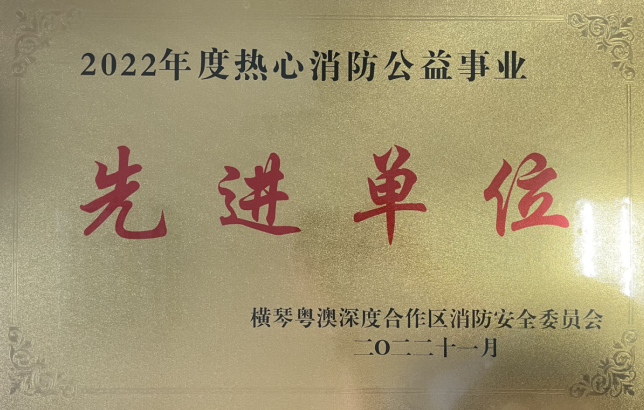 2022年度热心消防公益事业
先进单位
横琴粤澳深度合作区消防安全委员会
二〇二二十一月